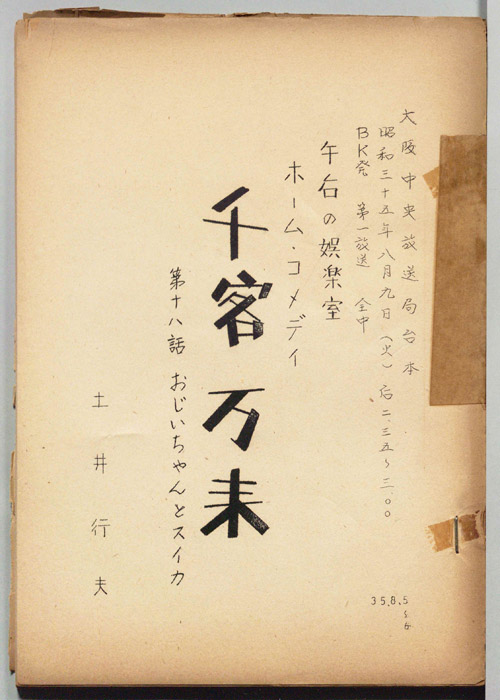 大阪中央放送局台本
昭和三十五年八月九日(火)后二.三五~三.〇〇
BK発 第一放送 全中
午后の娯楽室
ホーム・コメディ
千客万来
第十八話 おじいちゃんとスイカ
土井行夫
35.8.5